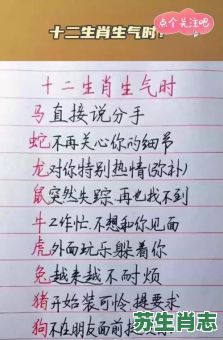 十二生肖生气时?
点个关注吧
十二生肖生气时
马直接说分手
蛇不再关心你的细节
龙对你特别热情(弥补)
鼠突然失踪再也找不到
牛工作忙、不想和你见面
虎外面玩乐躲着你
兔越来越不耐烦
猪开始装可怜提要求
狗不在朋友面前
苏生肖志